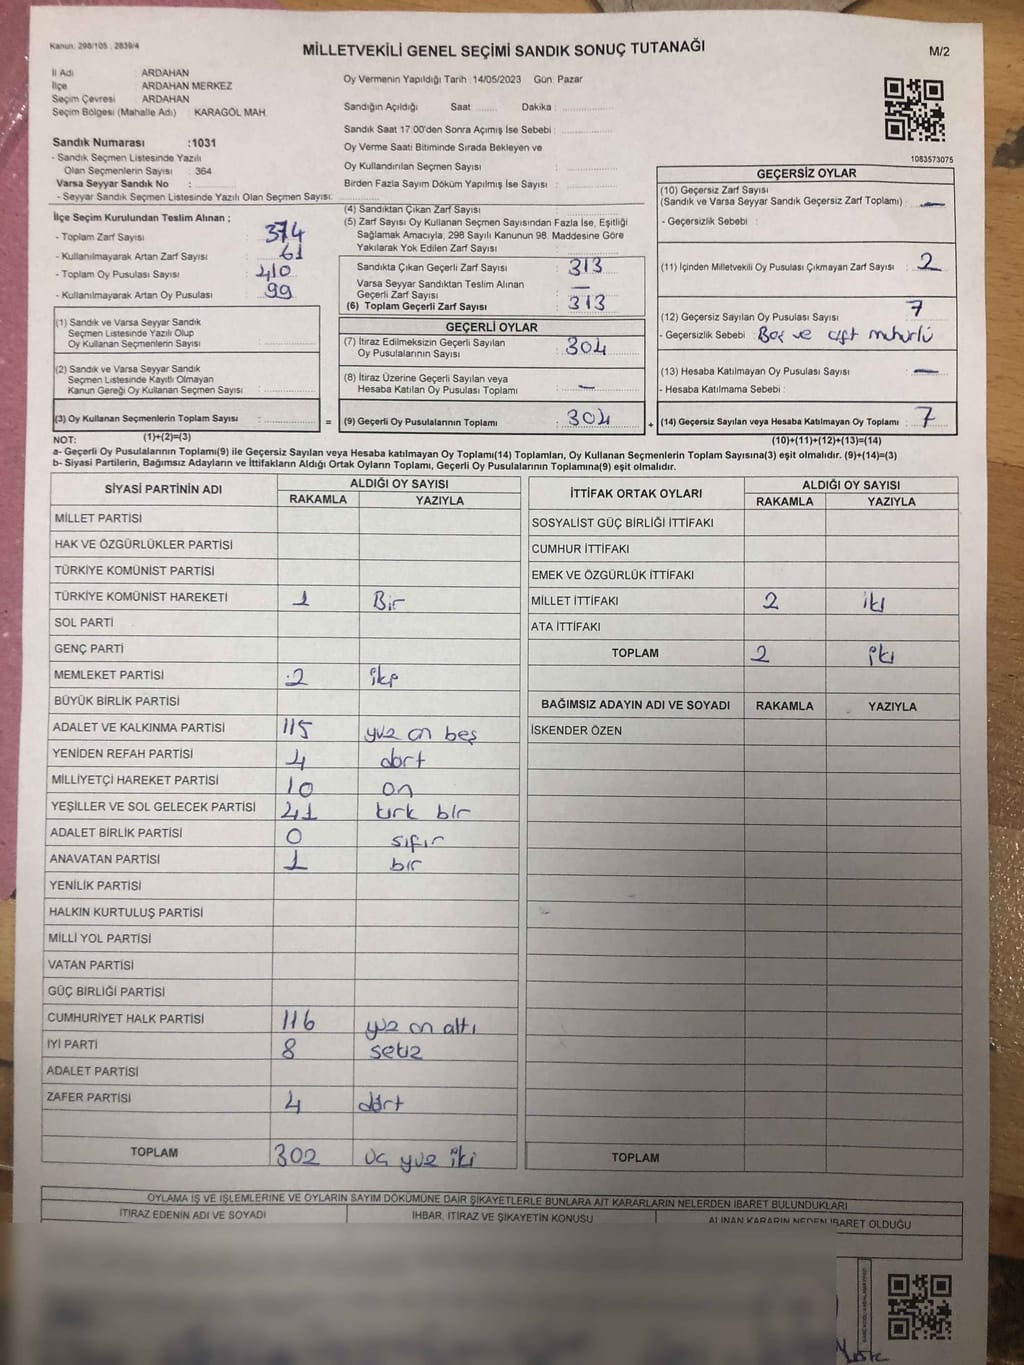 Kanun. 298/105 , 2839/4
MİLLETVEKİLİ GENEL SEÇİMİ SANDIK SONUÇ TUTANAĞI
M/2
İl Adı : ARDAHAN
İlçe : ARDAHAN MERKEZ
Seçim Çevresi : ARDAHAN
Seçim Bölgesi (Mahalle Adı) : KARAGÖL MAH.
Sandık Numarası :1031
- Sandık Seçmen Listesinde Yazılı
Olan Seçmenlerin Sayısı : 364
Varsa Seyyar Sandık No :
- Seyyar Sandık Seçmen Listesinde Yazılı Olan Seçmen Sayısı:
Oy Vermenin Yapıldığı Tarih :14/05/2023 Gün: Pazar
Sandığın Açıldığı Saat : Dakika :
Sandık Saat 17:00'den Sonra Açımış İse Sebebi :
Oy Verme Saati Bitiminde Sırada Bekleyen ve
Oy Kullandırılan Seçmen Sayısı :
Birden Fazla Sayım Döküm Yapılmış İse Sayısı :
1083573075
İlçe Seçim Kurulundan Teslim Alınan ;
- Toplam Zarf Sayısı : 374
- Kullanılmayarak Artan Zarf Sayısı : 61
- Toplam Oy Pusulası Sayısı : 410
- Kullanılmayarak Artan Oy Pusulası : 99
(1) Sandık ve Varsa Seyyar Sandık
Seçmen Listesinde Yazılı Olup
Oy Kullanan Seçmenlerin Sayısı :
(2) Sandık ve Varsa Seyyar Sandık
Seçmen Listesinde Kayıtlı Olmayan
Kanun Gereği Oy Kullanan Seçmen Sayısı :
(3) Oy Kullanan Seçmenlerin Toplam Sayısı :
(1)+(2)=(3)
(4) Sandıktan Çıkan Zarf Sayısı :
(5) Zarf Sayısı Oy Kullanan Seçmen Sayısından Fazla İse, Eşitliği
Sağlamak Amacıyla, 298 Sayılı Kanunun 98. Maddesine Göre
Yakılarak Yok Edilen Zarf Sayısı
Sandıkta Çıkan Geçerli Zarf Sayısı : 313
Varsa Seyyar Sandıktan Teslim Alınan
Geçerli Zarf Sayısı : —
(6) Toplam Geçerli Zarf Sayısı : 313
GEÇERLİ OYLAR
(7) İtiraz Edilmeksizin Geçerli Sayılan
Oy Pusulalarının Sayısı : 304
(8) İtiraz Üzerine Geçerli Sayılan veya
Hesaba Katılan Oy Pusulası Toplamı : —
= (9) Geçerli Oy Pusulalarının Toplamı : 304 +
GEÇERSİZ OYLAR
(10) Geçersiz Zarf Sayısı
(Sandık ve Varsa Seyyar Sandık Geçersiz Zarf Toplamı) : —
- Geçersizlik Sebebi :
(11) İçinden Milletvekili Oy Pusulası Çıkmayan Zarf Sayısı : 2
(12) Geçersiz Sayılan Oy Pusulası Sayısı : 7
- Geçersizlik Sebebi : Boş ve çift mühürlü
(13) Hesaba Katılmayan Oy Pusulası Sayısı : —
- Hesaba Katılmama Sebebi :
(14) Geçersiz Sayılan veya Hesaba Katılmayan Oy Toplamı : 7
(10)+(11)+(12)+(13)=(14)
NOT:
a- Geçerli Oy Pusulalarının Toplamı(9) ile Geçersiz Sayılan veya Hesaba katılmayan Oy Toplamı(14) Toplamları, Oy Kullanan Seçmenlerin Toplam Sayısına(3) eşit olmalıdır. (9)+(14)=(3)
b- Siyasi Partilerin, Bağımsız Adayların ve İttifakların Aldığı Ortak Oyların Toplamı, Geçerli Oy Pusulalarının Toplamına(9) eşit olmalıdır.
SİYASİ PARTİNİN ADI ALDIĞI OY SAYISI
RAKAMLA YAZIYLA
MİLLET PARTİSİ
HAK VE ÖZGÜRLÜKLER PARTİSİ
TÜRKİYE KOMÜNİST PARTİSİ
TÜRKİYE KOMÜNİST HAREKETİ 1 Bir
SOL PARTİ
GENÇ PARTİ
MEMLEKET PARTİSİ 2 iki
BÜYÜK BİRLİK PARTİSİ
ADALET VE KALKINMA PARTİSİ 115 yüz on beş
YENİDEN REFAH PARTİSİ 4 dört
MİLLİYETÇİ HAREKET PARTİSİ 10 on
YEŞİLLER VE SOL GELECEK PARTİSİ 41 kırk bir
ADALET BİRLİK PARTİSİ 0 sıfır
ANAVATAN PARTİSİ 1 bir
YENİLİK PARTİSİ
HALKIN KURTULUŞ PARTİSİ
MİLLİ YOL PARTİSİ
VATAN PARTİSİ
GÜÇ BİRLİĞİ PARTİSİ
CUMHURİYET HALK PARTİSİ 116 yüz on altı
İYİ PARTİ 8 sekiz
ADALET PARTİSİ
ZAFER PARTİSİ 4 dört
TOPLAM 302 üç yüz iki
İTTİFAK ORTAK OYLARI ALDIĞI OY SAYISI
RAKAMLA YAZIYLA
SOSYALİST GÜÇ BİRLİĞİ İTTİFAKI
CUMHUR İTTİFAKI
EMEK VE ÖZGÜRLÜK İTTİFAKI
MİLLET İTTİFAKI 2 iki
ATA İTTİFAKI
TOPLAM 2 iki
BAĞIMSIZ ADAYIN ADI VE SOYADI RAKAMLA YAZIYLA
İSKENDER ÖZEN
TOPLAM
OYLAMA İŞ VE İŞLEMLERİNE VE OYLARIN SAYIM DÖKÜMÜNE DAİR ŞİKAYETLERLE BUNLARA AİT KARARLARIN NELERDEN İBARET BULUNDUKLARI
İTİRAZ EDENİN ADI VE SOYADI İHBAR, İTİRAZ VE ŞİKAYETİN KONUSU ALINAN KARARIN NEDEN İBARET OLDUĞU